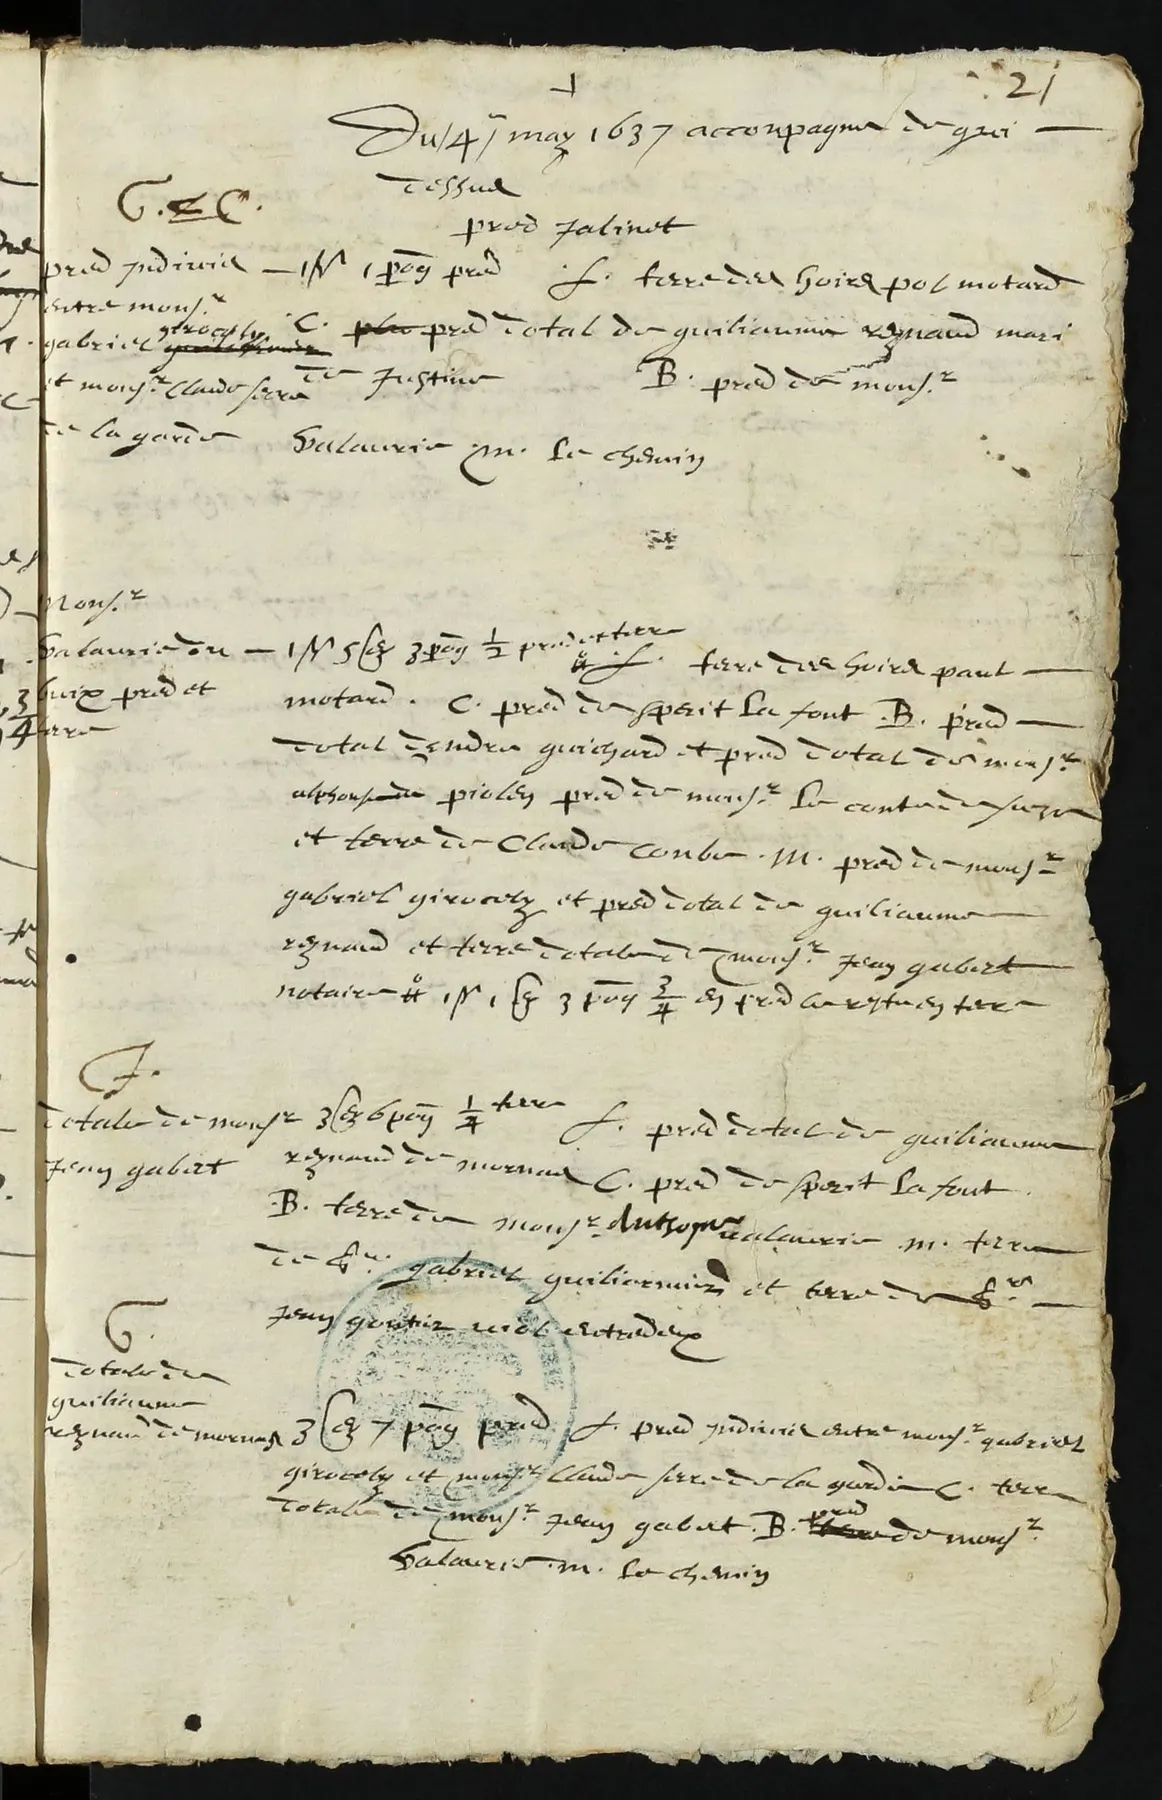 21
Du 4 may 1637 acconpagne de qui
dessus
pred Jalinet
G. & C.
pred judicis
entre mons.r
gabriel girocoly
et mons.r Claude serre
de la garde
1 pog pred L. terre des hoirs pol motard
C. pred dotal de guiliaume reynaud mari
de Justine B. pred de mons.r
Salaurie m. le chemin
Mons.r
Salaurie du
buix pred et
terre
5 3 pog 1/2 pred et terre L. terre des hoirs paul
motard. C. pred de sperit la font B. pred
dotal d'endre guichard et pred dotal de mons.r
alphonse de piolen pred de mons.r le conte de suze
et terre de Claude conbe. M. pred de mons.r
gabriel girocoly et pred dotal de guiliaume
reynaud et terre dotale de mons.r Jean gabert
notaire 1 3 pog 3/4 en pred le reste en terre
F.
dotale de mons.r
Jean gabert
3 6 pog 1/4 terre L. pred dotal de guiliaume
reynaud de mornas C. pred de sperit la font
B. terre de mons.r Salaurie m. terre
de gabriel guiliermier et terre de
Jean gontier entredeux
G.
dotale de
guiliaume
reynaud de mornas
3 7 pog pred L. pred judicis entre mons.r gabriel
girocoly et mons.r Claude serre de la garde C. terre
dotale de mons.r Jean gabert. B. pred de mons.r
Salaurie. m. le chemin